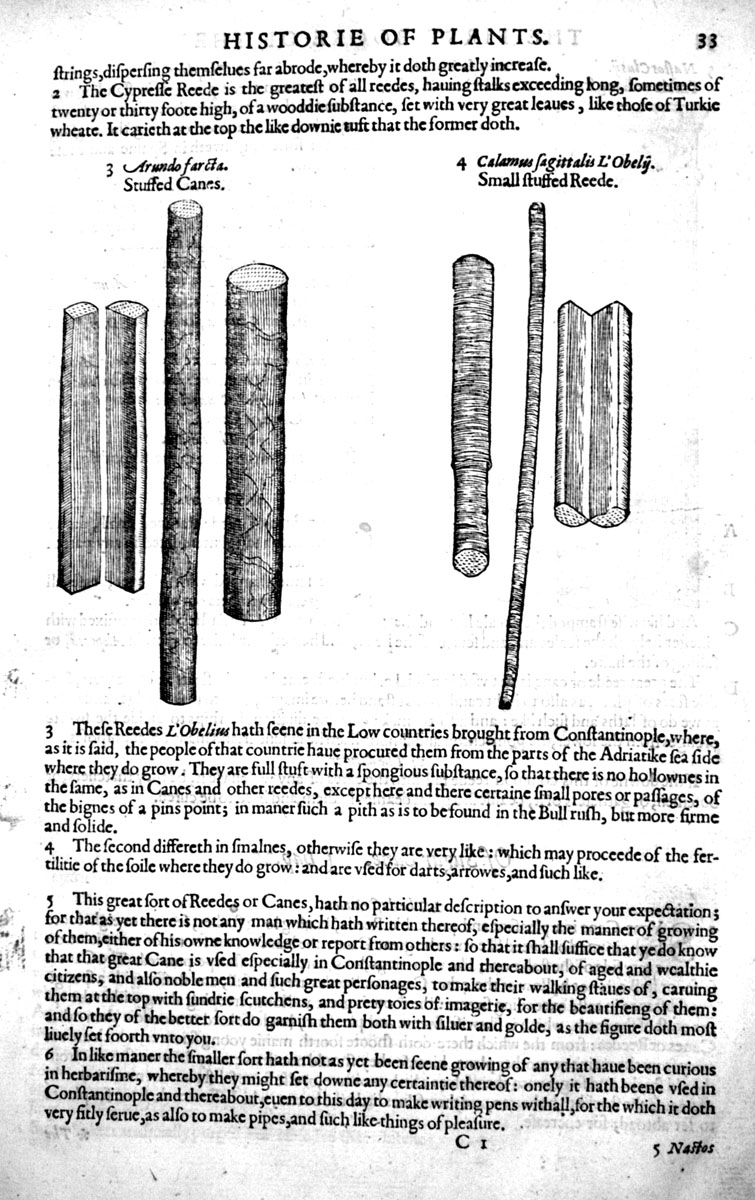 HISTORIE OF PLANTS. 33
ſtrings,diſperſing themſelues far abrode,whereby it doth greatly increaſe.
2 The Cypreſſe Reede is the greateſt of all reedes, hauing ſtalks exceeding long, ſometimes of
twenty or thirty foote high, of a wooddie ſubſtance, ſet with very great leaues , like thoſe of Turkie
wheate. It carieth at the top the like downie tuft that the former doth.
3 Arundo farcta.
Stuffed Canes.
4 Calamus ſagittalis L'Obelij.
Small ſtuffed Reede.
3 Theſe Reedes L'Obelius hath ſeene in the Low countries brought from Conſtantinople,where,
as it is ſaid, the people of that countrie haue procured them from the parts of the Adriatike ſea ſide
where they do grow. They are full ſtuft with a ſpongious ſubſtance, ſo that there is no hollownes in
the ſame, as in Canes and other reedes, except here and there certaine ſmall pores or paſſages, of
the bignes of a pins point; in maner ſuch a pith as is to be found in the Bull ruſh, but more firme
and ſolide.
4 The ſecond differeth in ſmalnes, otherwiſe they are very like: which may proceede of the fer-
tilitie of the ſoile where they do grow: and are vſed for darts,arrowes,and ſuch like.
5 This great ſort of Reedes or Canes, hath no particular deſcription to anſwer your expectation;
for that as yet there is not any man which hath written thereof, eſpecially the manner of growing
of them,either of his owne knowledge or report from others: ſo that it ſhall ſuffice that ye do know
that that great Cane is vſed eſpecially in Conſtantinople and thereabout, of aged and wealthie
citizens, and alſo noble men and ſuch great perſonages, to make their walking ſtaues of, caruing
them at the top with ſundrie ſcutchens, and prety toies of imagerie, for the beautifieng of them:
and ſo they of the better ſort do garniſh them both with ſiluer and golde, as the figure doth moſt
liuely ſet foorth vnto you.
6 In like maner the ſmaller ſort hath not as yet been ſeene growing of any that haue been curious
in herbariſme, whereby they might ſet downe any certaintie thereof: onely it hath beene vſed in
Conſtantinople and thereabout,euen to this day to make writing pens withall,for the which it doth
very fitly ſerue,as alſo to make pipes,and ſuch like things of pleaſure.
C 1
5 Naſtos